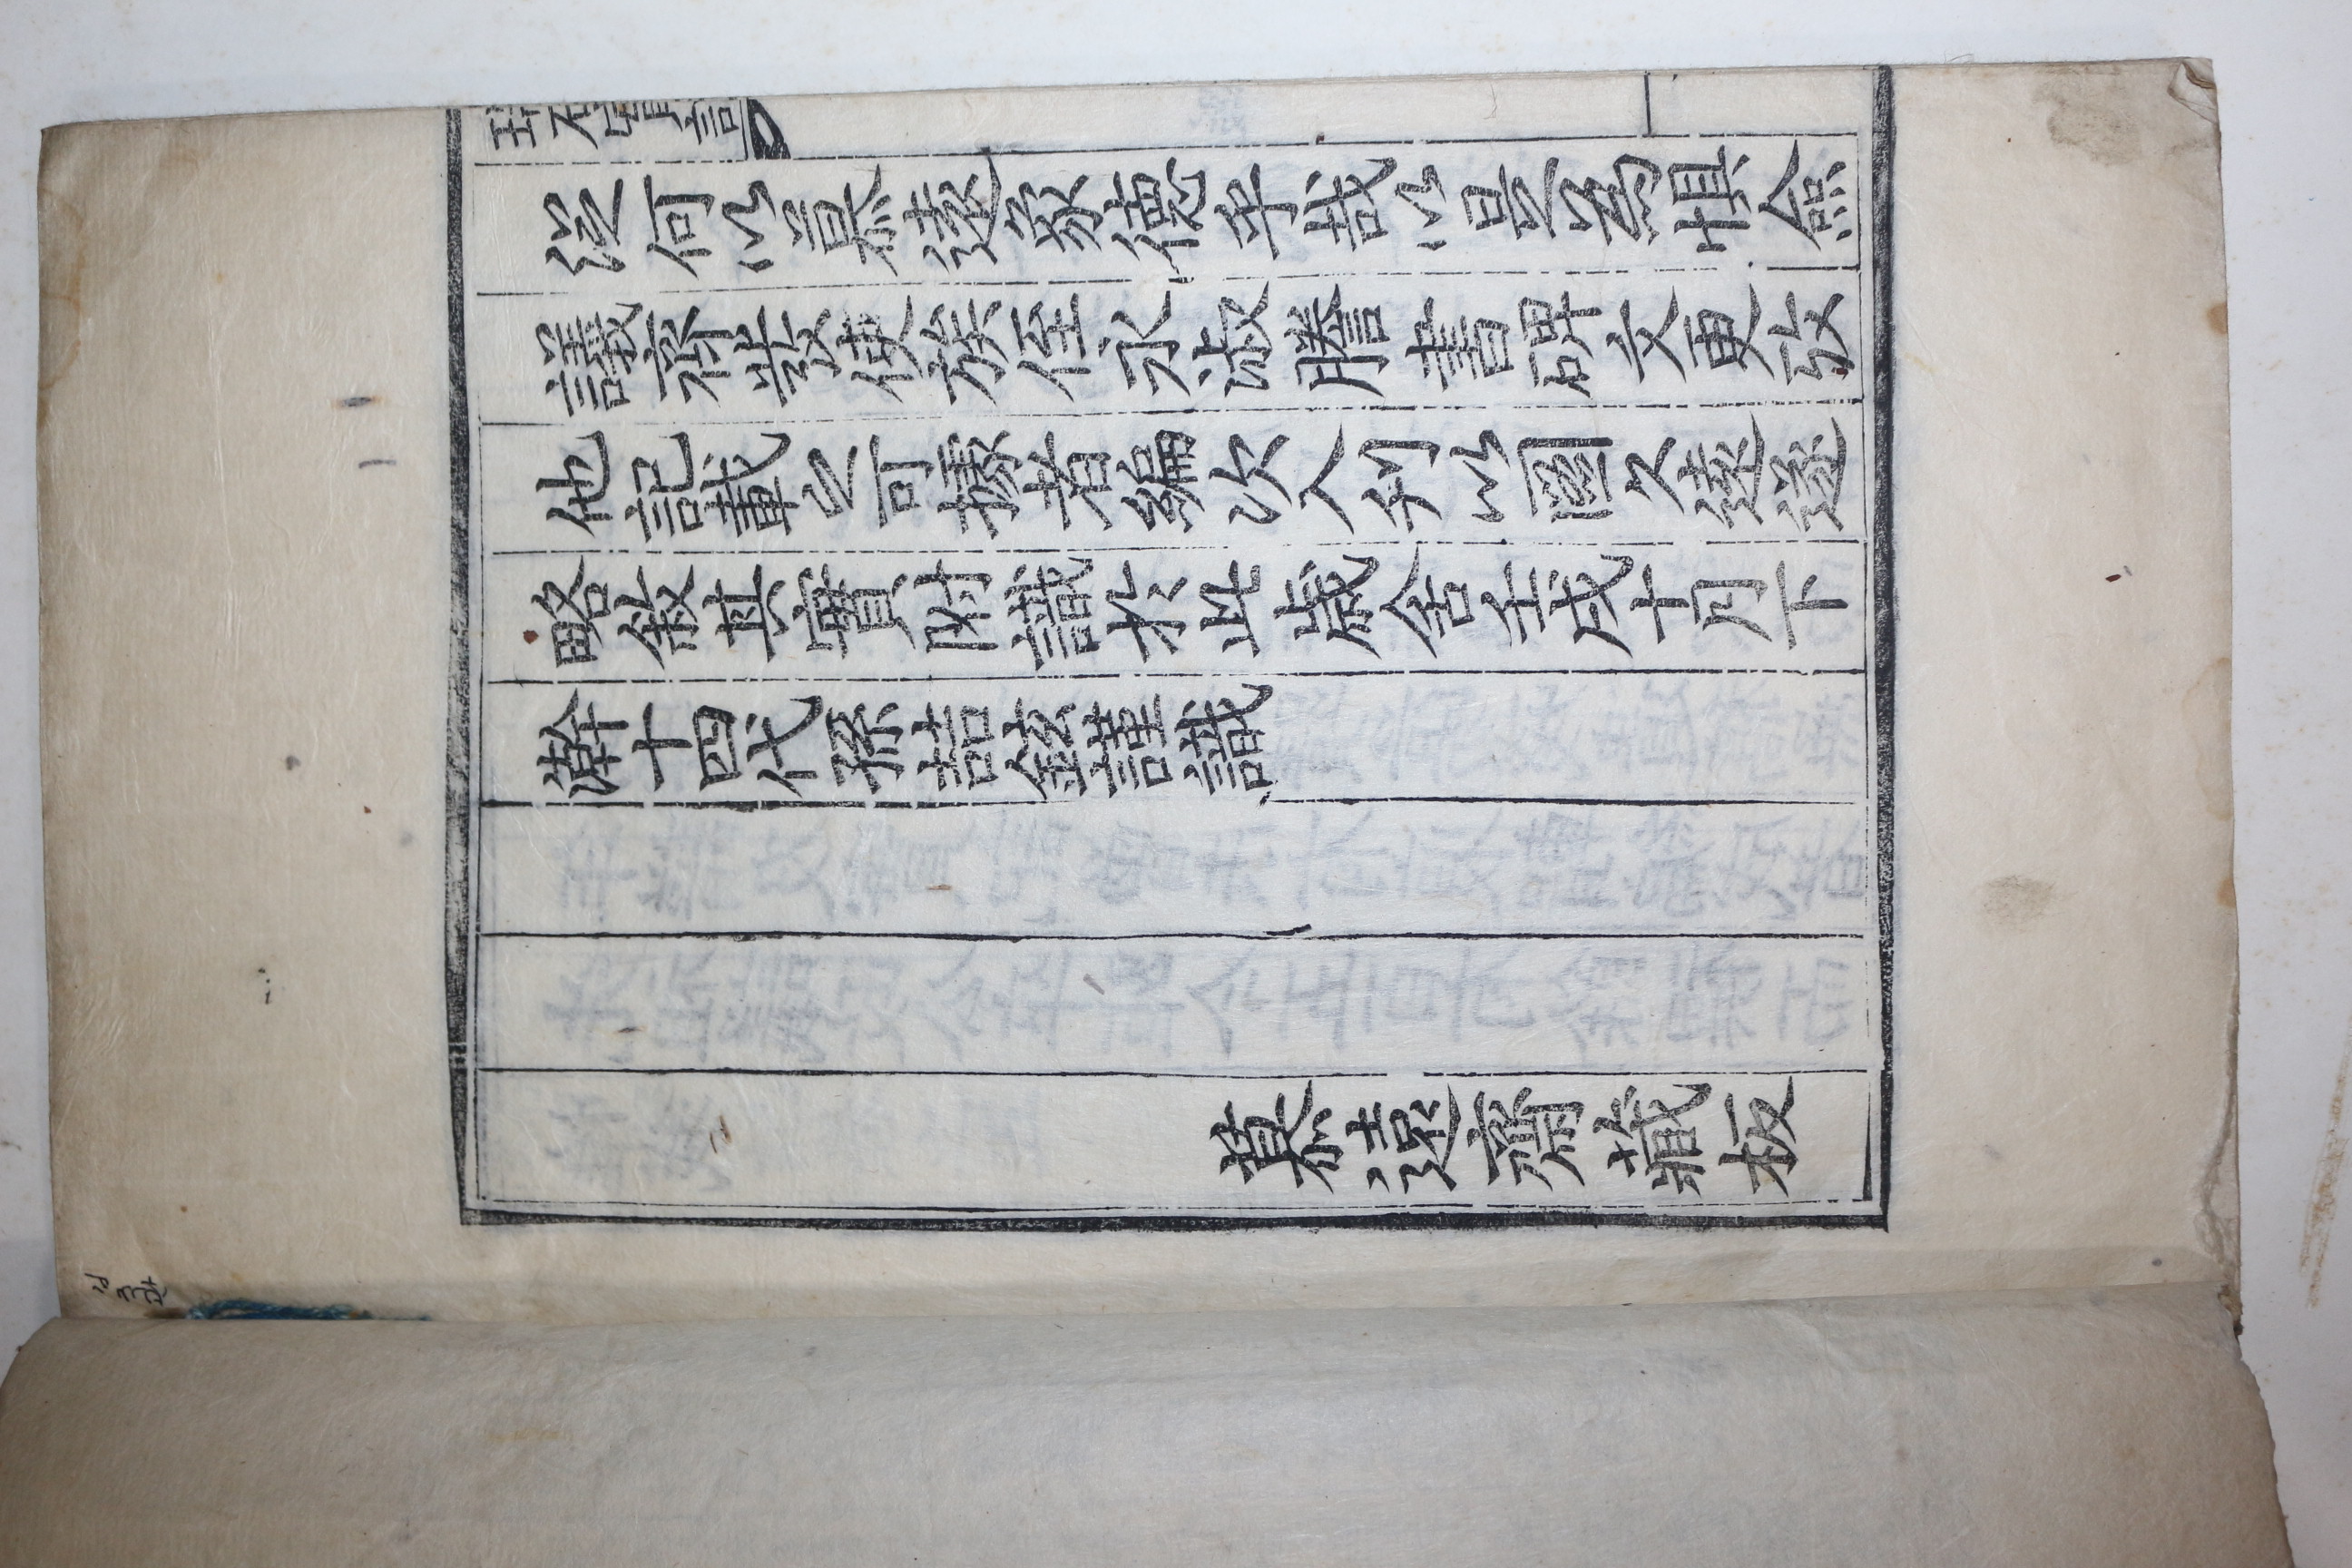 從何以慕遠象德乎哉以是為惧僉
議齊發使族侄永淑謄書碑文更攷
他記載之可據者編次入刊以圖久遠遂
略敘其實附識於此歲舍壬戌十月下
澣十四代孫喆鉉謹識
慕遠齋藏板